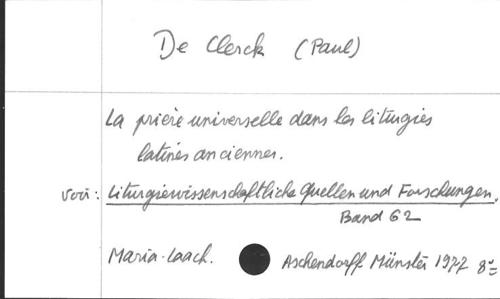 De Clerck (Paul)
La prière universelle dans les liturgies
latines anciennes.
Voir: Liturgiewissenschaftliche Quellen und Forschungen.
Band 62
Maria-Laach. Aschendorff Münster 1977 8°